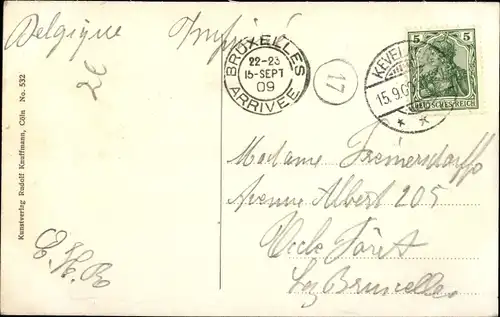 Belgique Imprimé
BRUXELLES
22-23
15-SEPT
09
ARRIVÉE
17
KEVEL
15.9.09
5 5
DEUTSCHES REICH
Kunstverlag Rudolf Kauffmann, Cöln No. 532
Madame
Avenue Albert 205
Uccle Forêt
Lez Bruxelles
E. H. B